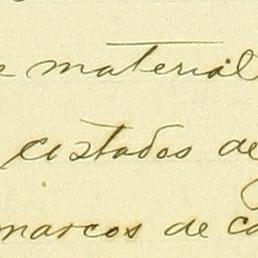 e material
costados de
marcos de ca